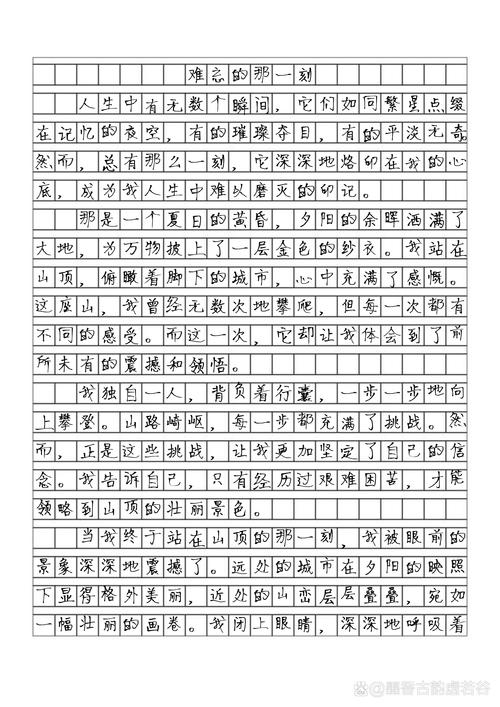 难忘的那一刻
人生中有无数个瞬间，它们如同繁星点缀
在记忆的夜空，有的璀璨夺目，有的平淡无奇
然而，总有那么一刻，它深深地烙印在我的心
底，成为我人生中难以磨灭的印记。
那是一个夏日的黄昏，夕阳的余晖洒满了
大地，为万物披上了一层金色的纱衣。我站在
山顶，俯瞰着脚下的城市，心中充满了感慨。
这座山，我曾经无数次地攀爬，但每一次都有
不同的感受。而这一次，它却让我体会到了前
所未有的震撼和领悟。
我独自一人，背负着行囊，一步一步地向
上攀登。山路崎岖，每一步都充满了挑战。然
而，正是这些挑战，让我更加坚定了自己的信
念。我告诉自己，只有经历过艰难困苦，才能
领略到山顶的壮丽景色。
当我终于站在山顶的那一刻，我被眼前的
景象深深地震撼了。远处的城市在夕阳的映照
下显得格外美丽，近处的山峦层层叠叠，宛如
一幅壮丽的画卷。我闭上眼睛，深深地呼吸着